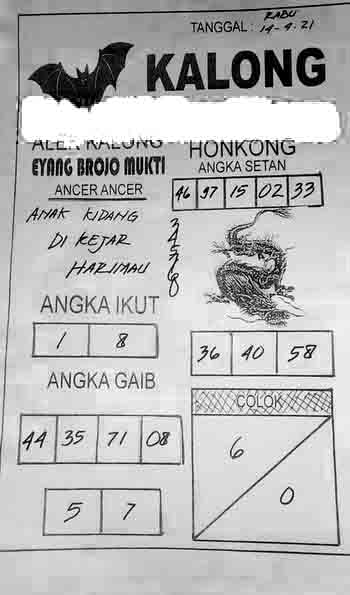 RABU
TANGGAL : 14-4-21
KALONG
EYANG BROJO MUKTI
ANCER ANCER
ANAK KIDANG
DI KEJAR
HARIMAU
HONKONG
ANGKA SETAN
46 97 15 02 33
ANGKA IKUT
1 8
36 40 58
ANGKA GAIB
44 35 71 08
5 7
COLOK
6
0